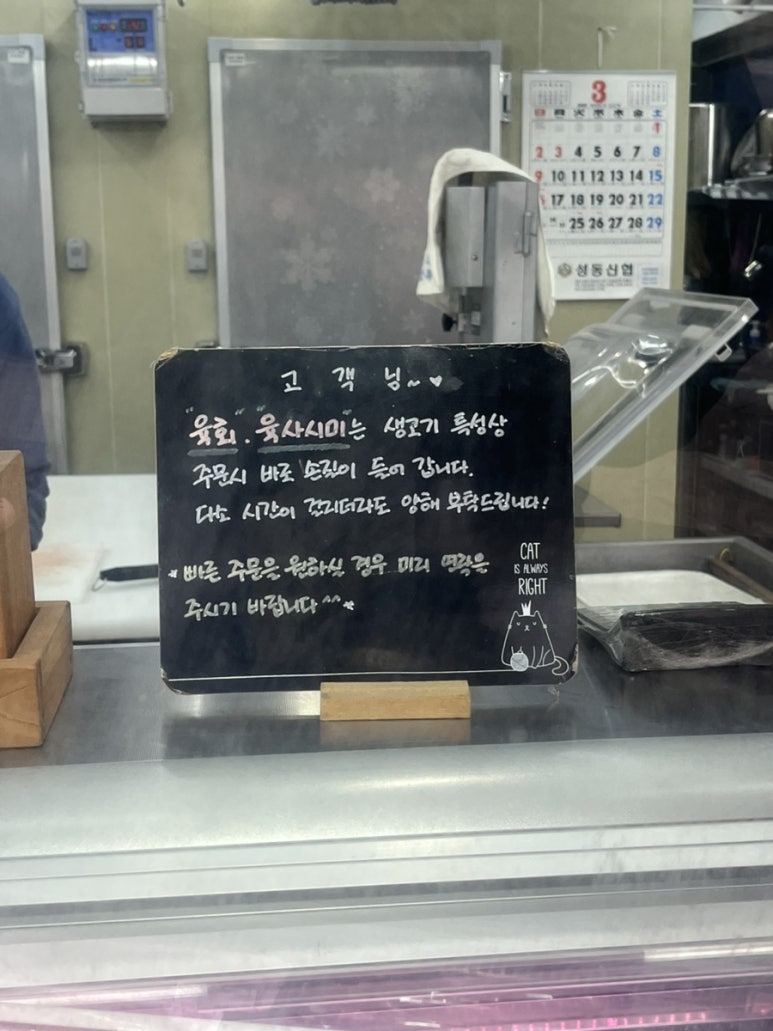 3
日 月 火 水 木 金 土
1
2 3 4 5 6 7 8
9 10 11 12 13 14 15
17 18 19 20 21 22
25 26 27 28 29
성동신협
고 객 님~♥
"육회". "육사시미"는 생고기 특성상
주문시 바로 손질이 들어 갑니다.
다소 시간이 걸리더라도 양해 부탁드립니다!
*빠른 주문을 원하실 경우 미리 연락을
주시기 바랍니다^^*
CAT
IS ALWAYS
RIGHT